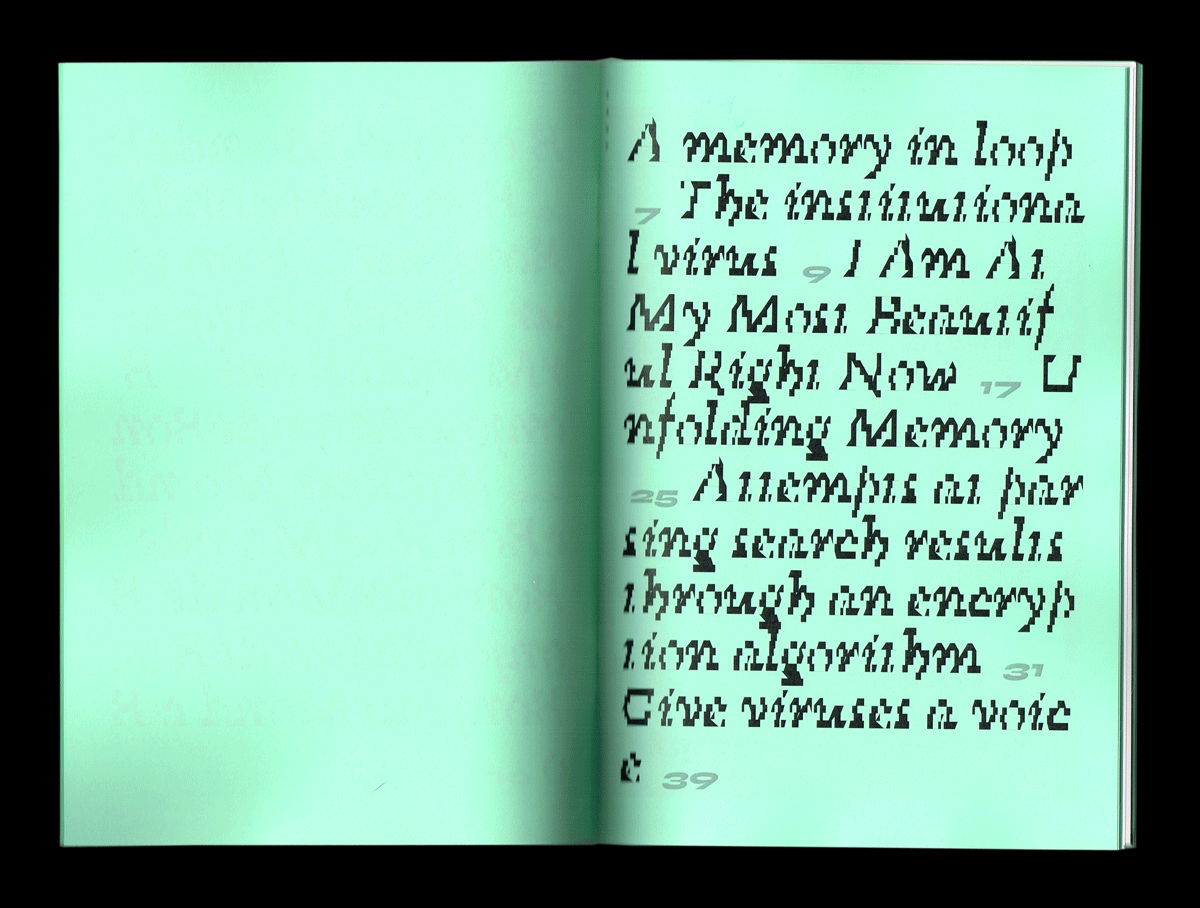 A memory in loop
7 The institutiona
l virus 9 I Am At
My Most Beautif
ul Right Now 17 U
nfolding Memory
25 Attempts at par
sing search results
through an encryp
tion algorithm 31
Give viruses a voic
e 39